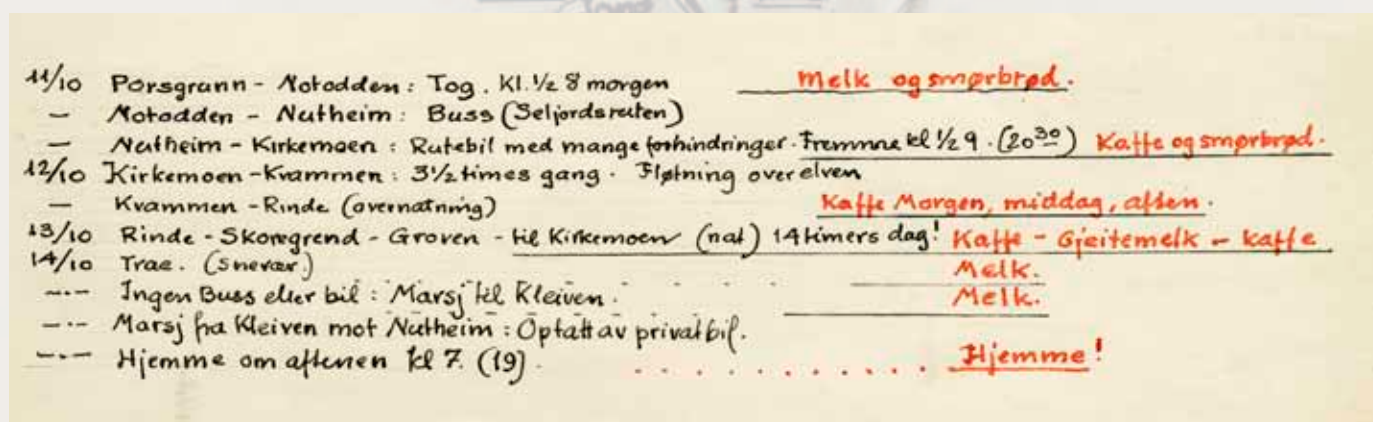 11/10 Porsgrunn - Notodden : Tog . Kl. ½ 8 morgen Melk og smørbrød .
— Notodden - Nutheim : Buss (Seljordsruten)
— Nutheim - Kirkemoen : Rutebil med mange forhindringer . Fremme kl ½ 9 . (20 30) Kaffe og smørbrød .
12/10 Kirkemoen - Kvammen : 3½ times gang . Fløtning over elven
— Kvammen - Rinde (overnatning) Kaffe Morgen, middag, aften .
13/10 Rinde - Skoregrend - Groven - til Kirkemoen (nat) 14 timers dag ! Kaffe - Gjeitemelk - kaffe
14/10 Trae . (Snevær.) Melk .
—·— Ingen Buss eller bil : Marsj til Kleiven . Melk .
—·— Marsj fra Kleiven mot Nutheim : Optatt av privatbil .
—·— Hjemme om aftenen kl 7. (19) . . . . . . . . . . . . Hjemme !